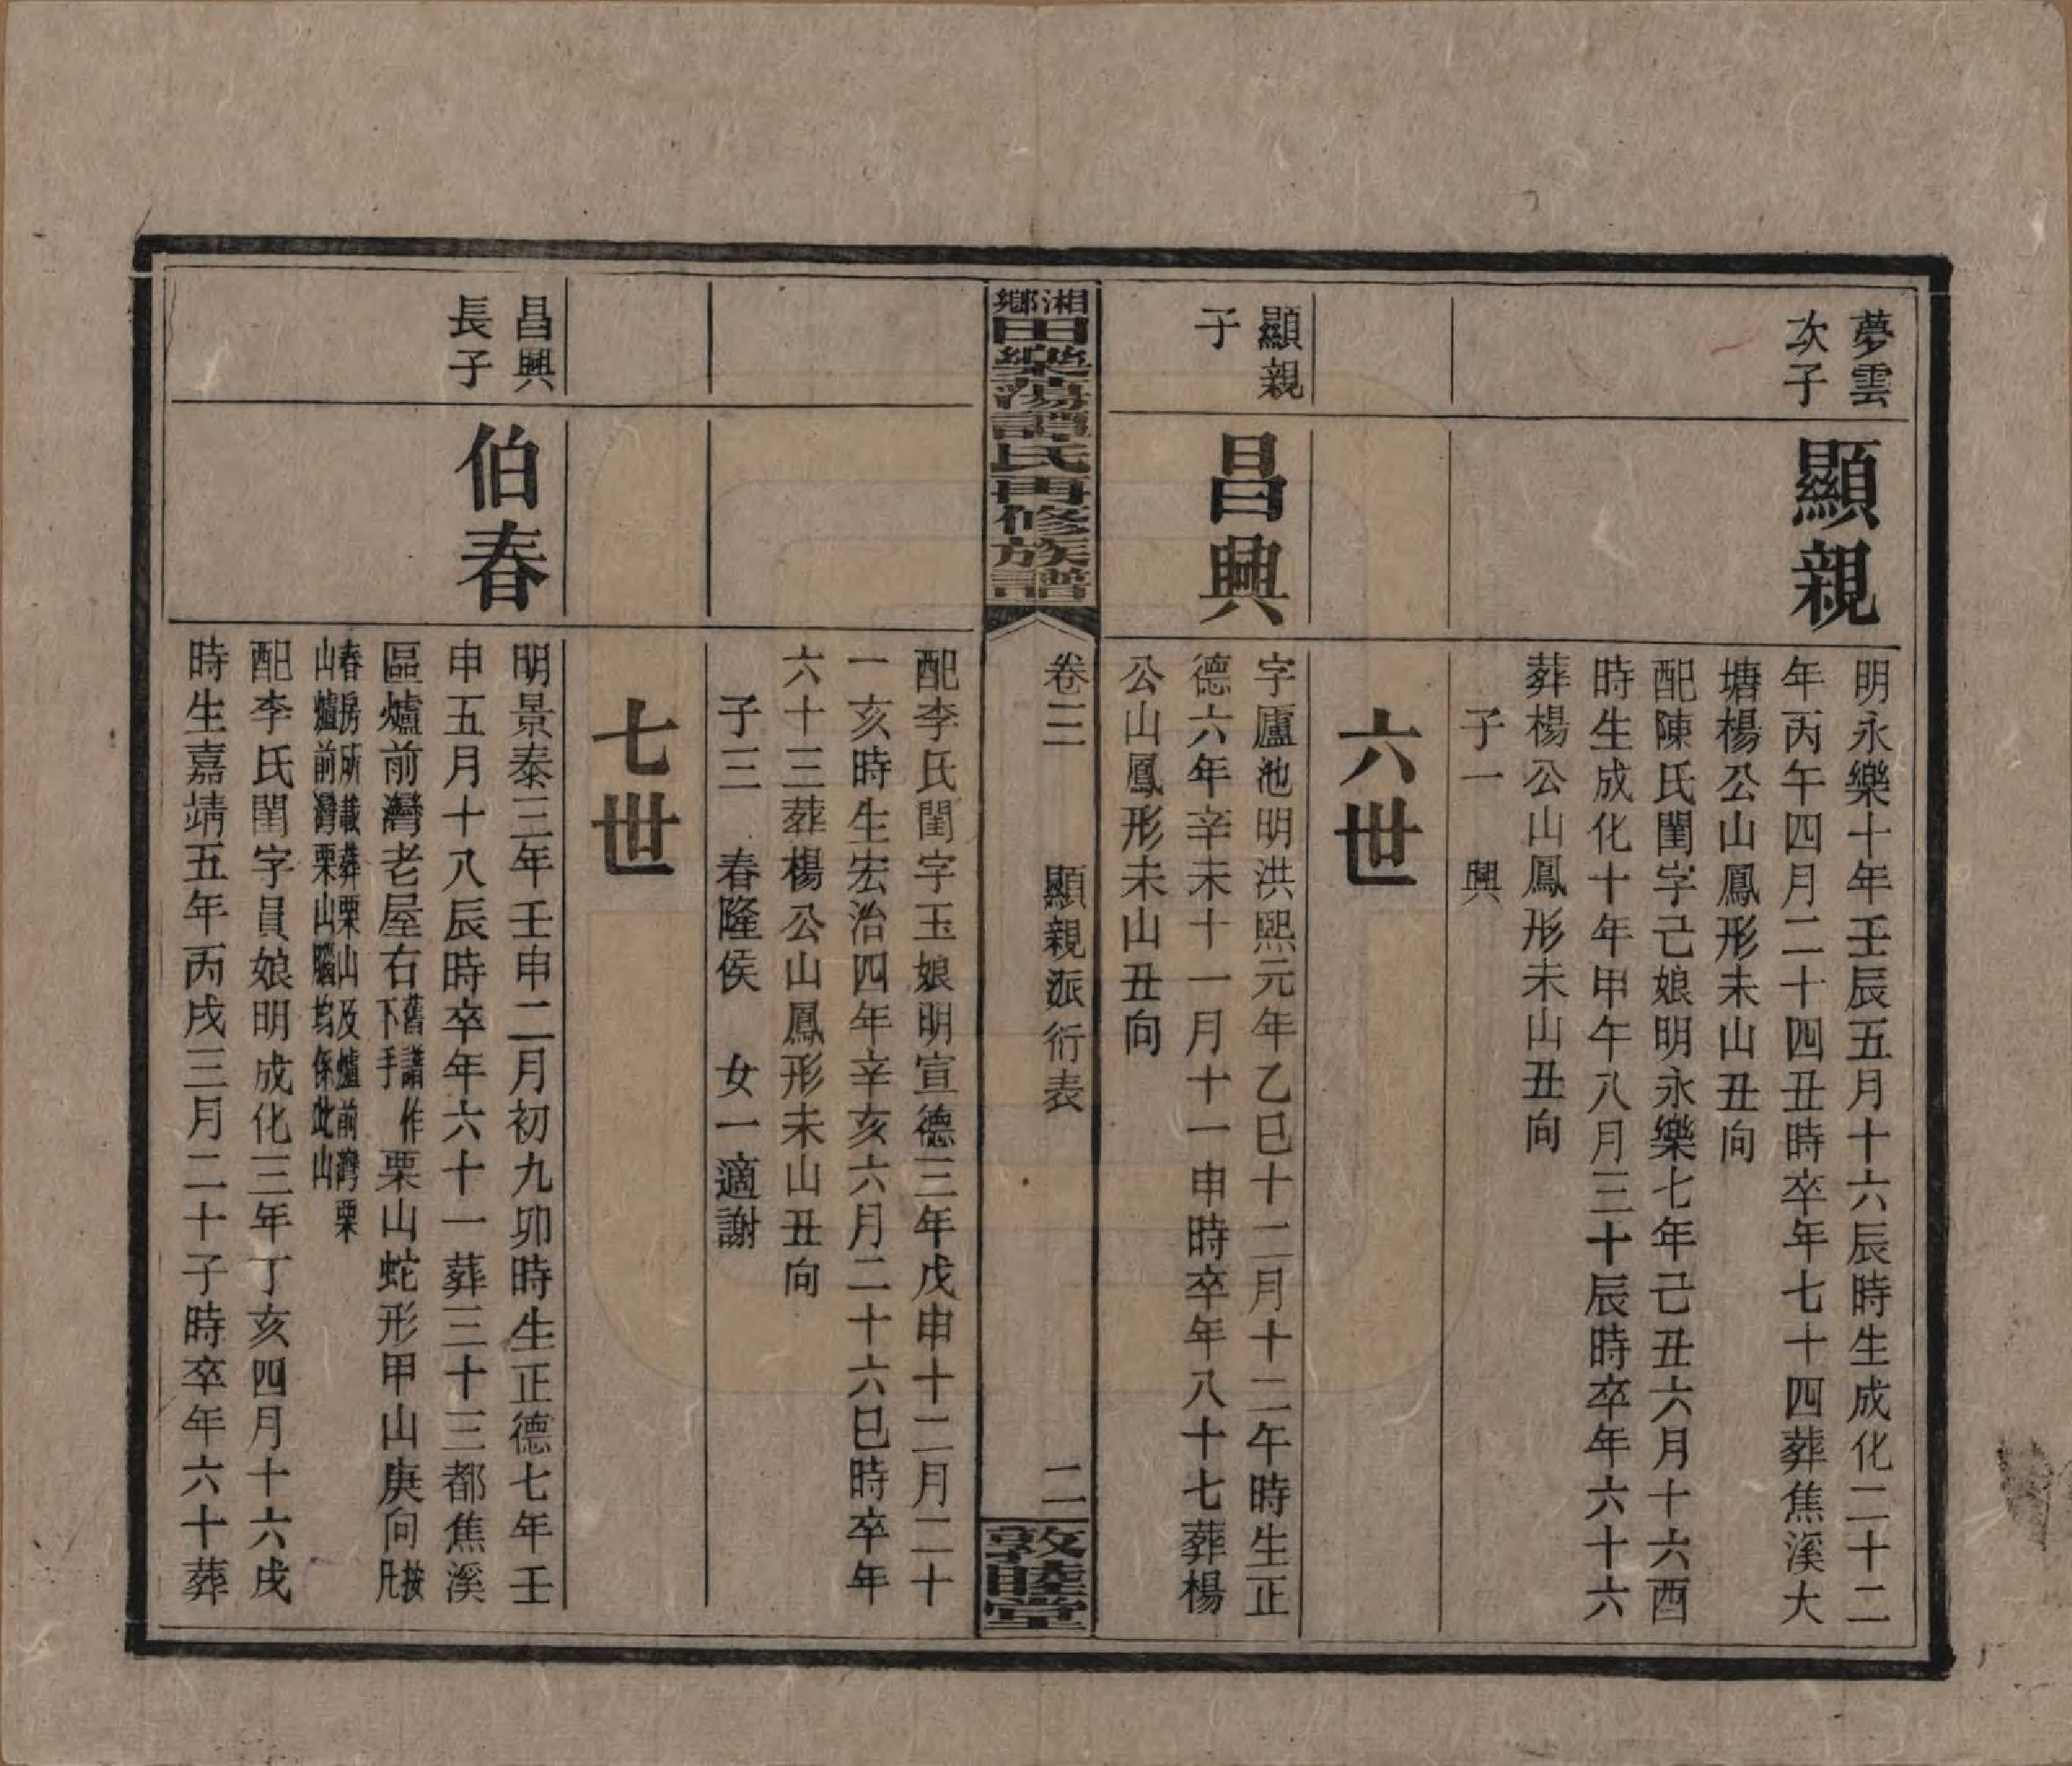 夢雲
次子
顯親
明永樂十年壬辰五月十六辰時生成化二十二
年丙午四月二十四丑時卒年七十四葬焦溪大
塘楊公山鳳形未山丑向
配陳氏閨字己娘明永樂七年己丑六月十六酉
時生成化十年甲午八月三十辰時卒年六十六
葬楊公山鳳形未山丑向
子一　興
六世
顯親
子
昌興
字廬池明洪熙元年乙巳十二月十二午時生正
德六年辛未十一月十一申時卒年八十七葬楊
公山鳳形未山丑向
湘鄉
田樂蕩譚氏再修族譜
卷三　顯親派衍表　二
敦睦堂
配李氏閨字玉娘明宣德三年戊申十二月二十
一亥時生宏治四年辛亥六月二十六巳時卒年
六十三葬楊公山鳳形未山丑向
子三　春隆侯　女一適謝
七世
昌興
長子
伯春
明景泰三年壬申二月初九卯時生正德七年壬
申五月十八辰時卒年六十一葬三十三都焦溪
區爐前灣老屋右舊譜作下手栗山蛇形甲山庚向按凡
春房所載葬栗山及爐前灣栗
山爐前灣栗山腦均係此山
配李氏閨字員娘明成化三年丁亥四月十六戌
時生嘉靖五年丙戌三月二十子時卒年六十葬